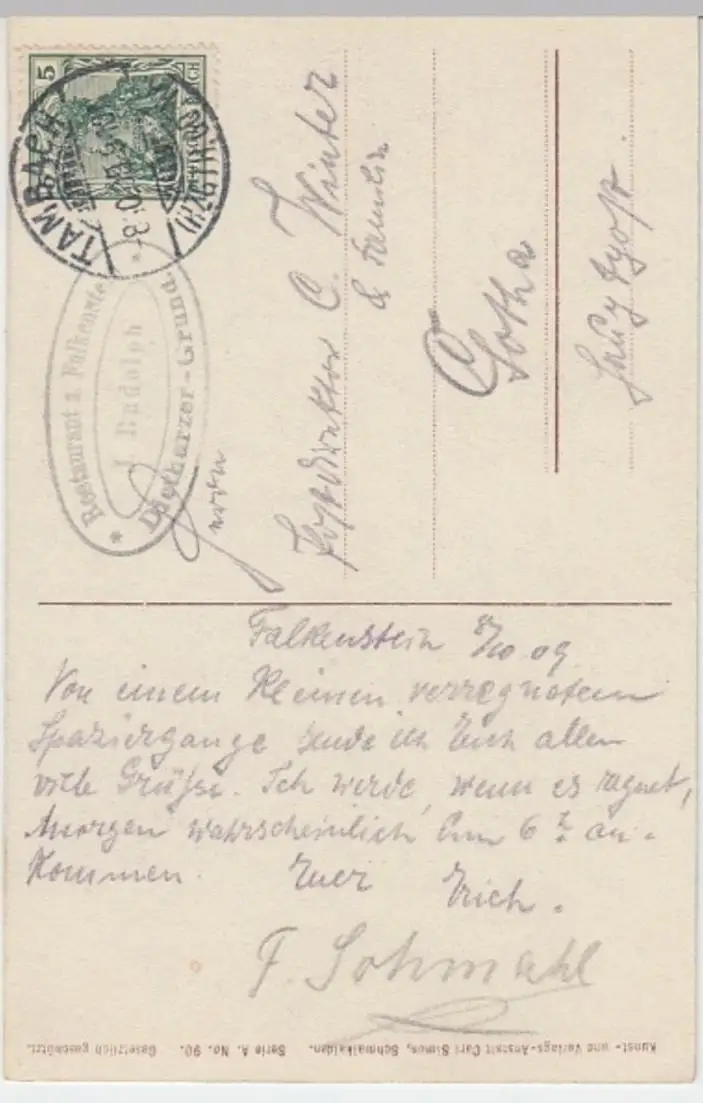 5
TAMBACH
(HZGTH. GOTHA)
Restaurant z. Falkenstein
J. Rudolph
* Dietharzer-Grund. *
Herrn
Postdirektor C. Winter
& Familie
Gotha
Hauptpost.
Falkenstein 8/10 09
Von einem kleinen verregneten
Spaziergange sende ich Euch allen
viele Grüße. Ich werde, wenn es regnet,
Morgen wahrscheinlich um 6 an-
kommen. Euer Erich.
F. Schmahl
Kunst- und Verlags-Anstalt Carl Simon, Schmalkalden. Serie A. No. 90. Gesetzlich geschützt.